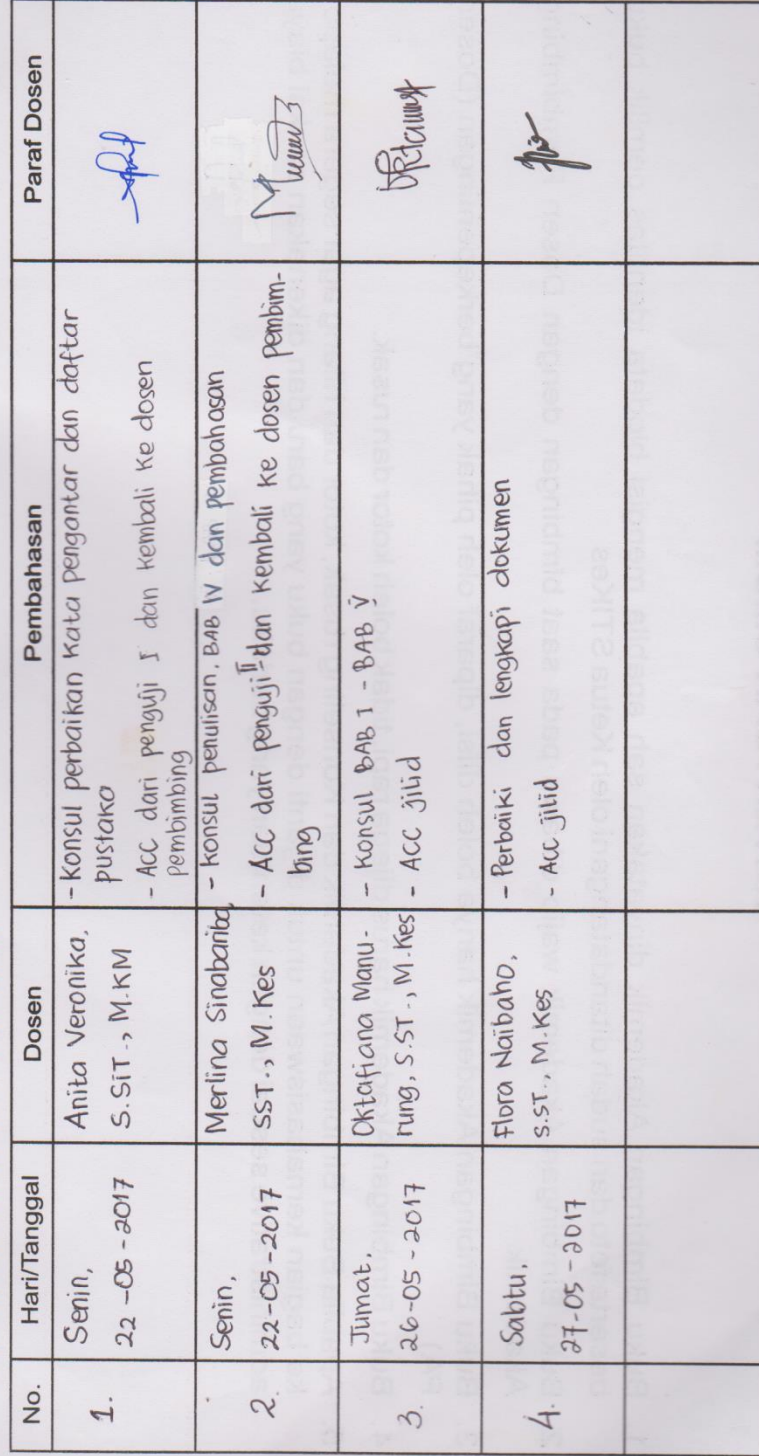 No.
Hari/Tanggal
Dosen
Pembahasan
Paraf Dosen
1.
Senin,
22-05-2017
Anita Veronika,
S.SiT., M.KM
- Konsul perbaikan kata pengantar dan daftar
pustaka
- ACC dari penguji I dan kembali ke dosen
pembimbing
2.
Senin,
22-05-2017
Merlina Sinabariba,
SST., M.Kes
- Konsul penulisan, BAB IV dan pembahasan
- ACC dari penguji II dan kembali ke dosen pembim-
bing
3.
Jumat,
26-05-2017
Oktafiana Manu-
rung, S.ST., M.Kes
- Konsul BAB I - BAB V
- ACC jilid
4.
Sabtu,
27-05-2017
Flora Naibaho,
S.ST., M.Kes
- Perbaiki dan lengkapi dokumen
- ACC jilid